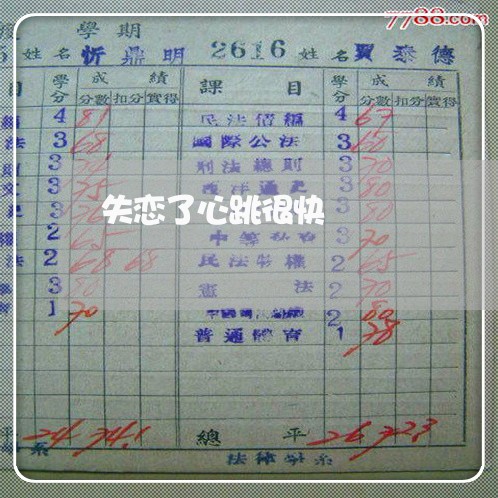 7788.com
學期
姓名 忻鼎明 2616 姓名 賈泰德
目 學分 成績 課目 學分 成績
分數 扣分 實得 分數 扣分 實得
4 81 民法債編 4 67
法 3 68 國際公法 3 60
3 刑法總則 3 70
3 75 西洋通史 3 80
失恋了心跳很快
3 3 80
2 65 3 70
法 2 68 68 民法物權 2 65
3 80 憲法 2 70
1 70 2 80
普通體育 1 78
平 24 74.1 總平 26 72.3
系 法律學系